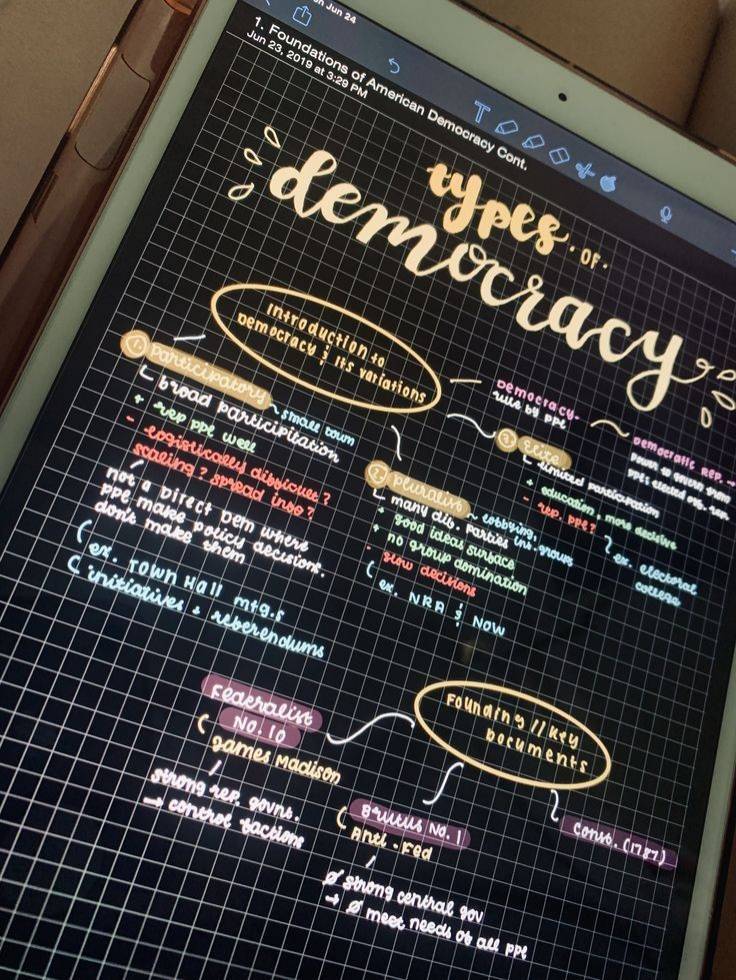 on Jun 24
1. Foundations of American Democracy Cont.
Jun 23, 2019 at 3:29 PM
types of
democracy
Introduction to
Democracy & its variations
Democracy-
rule by ppl
Democratic Rep. →
1. Participatory
small town
↳ broad participation
+ rep ppl well
- logistically difficult?
scaling? spread info?
not a direct dem where
ppl make policy decisions.
don't make them
ex. Town Hall mtg.s
initiatives + referendums
2. Pluralist
lobbying,
int. groups
↳ many dif. parties
+ good ideas surface
+ no group domination
- slow decisions
ex. NRA & NOW
3. Elite
↳ limited participation
+ education, more decisive
- rep. ppl?
ex. electoral
college
Founding // Key
Documents
Federalist
No. 10
James Madison
strong rep. govnt.
→ control factions
Brutus No. 1
Anti-Fed
Ø strong central gov
→ Ø meet needs of all ppl
Const. (1787)